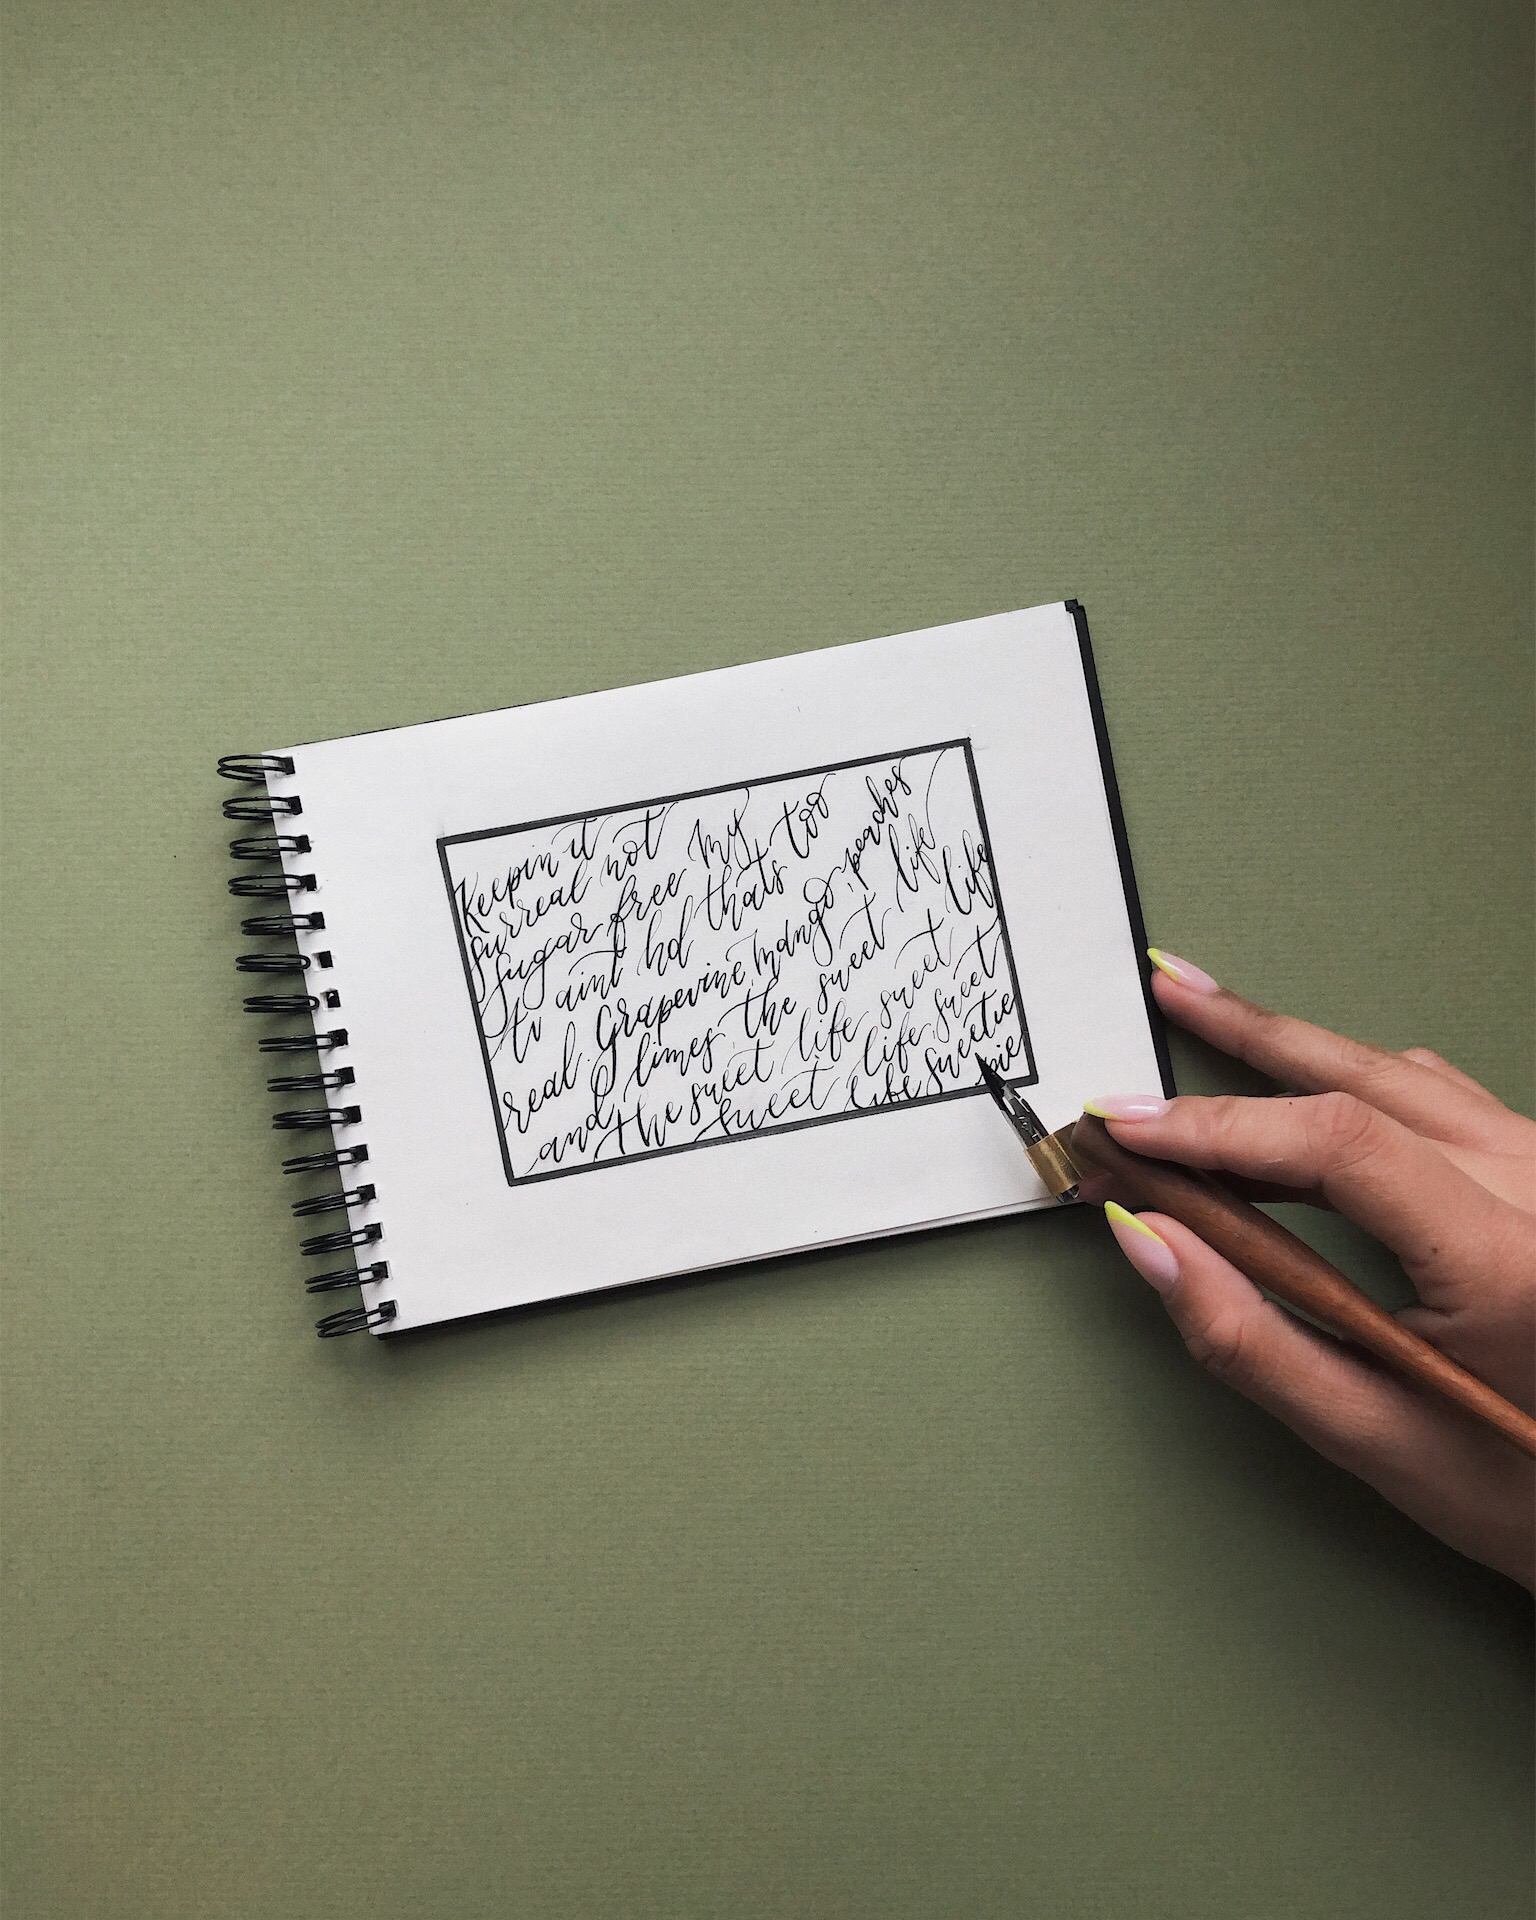 Keepin it
surreal not my
sugar free
tv aint hd thats too
real Grapevine, mango, peaches
and limes, the sweet life
the sweet life, sweet life
sweet life, sweet
life sweetie
pie